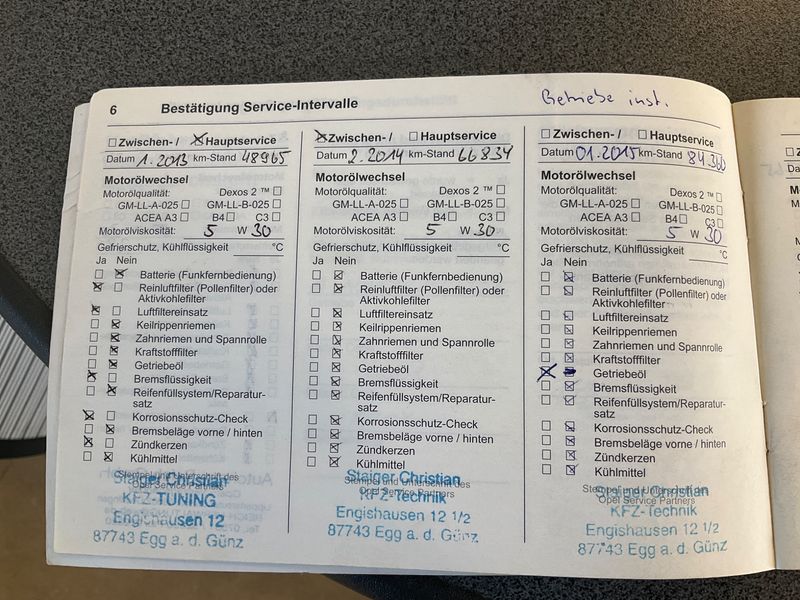 6 Bestätigung Service-Intervalle
Getriebe inst.
Zwischen- / Hauptservice
Datum 1.2013 km-Stand 48965
Motorölwechsel
Motorölqualität: Dexos 2 ™
GM-LL-A-025 GM-LL-B-025
ACEA A3 B4 C3
Motorölviskosität: 5 W 30
Gefrierschutz, Kühlflüssigkeit °C
Ja Nein
Batterie (Funkfernbedienung)
Reinluftfilter (Pollenfilter) oder
Aktivkohlefilter
Luftfiltereinsatz
Keilrippenriemen
Zahnriemen und Spannrolle
Kraftstofffilter
Getriebeöl
Bremsflüssigkeit
Reifenfüllsystem/Reparatur-
satz
Korrosionsschutz-Check
Bremsbeläge vorne / hinten
Zündkerzen
Kühlmittel
Stempel und Unterschrift des
Opel Service Partners
Staiger Christian
KFZ-TUNING
Engishausen 12
87743 Egg a. d. Günz
Zwischen- / Hauptservice
Datum 2.2014 km-Stand 66834
Motorölwechsel
Motorölqualität: Dexos 2 ™
GM-LL-A-025 GM-LL-B-025
ACEA A3 B4 C3
Motorölviskosität: 5 W 30
Gefrierschutz, Kühlflüssigkeit °C
Ja Nein
Batterie (Funkfernbedienung)
Reinluftfilter (Pollenfilter) oder
Aktivkohlefilter
Luftfiltereinsatz
Keilrippenriemen
Zahnriemen und Spannrolle
Kraftstofffilter
Getriebeöl
Bremsflüssigkeit
Reifenfüllsystem/Reparatur-
satz
Korrosionsschutz-Check
Bremsbeläge vorne / hinten
Zündkerzen
Kühlmittel
Stempel und Unterschrift des
Opel Service Partners
Staiger Christian
KFZ-Technik
Engishausen 12 1/2
87743 Egg a. d. Günz
Zwischen- / Hauptservice
Datum 01.2015 km-Stand 84.360
Motorölwechsel
Motorölqualität: Dexos 2 ™
GM-LL-A-025 GM-LL-B-025
ACEA A3 B4 C3
Motorölviskosität: 5 W 30
Gefrierschutz, Kühlflüssigkeit °C
Ja Nein
Batterie (Funkfernbedienung)
Reinluftfilter (Pollenfilter) oder
Aktivkohlefilter
Luftfiltereinsatz
Keilrippenriemen
Zahnriemen und Spannrolle
Kraftstofffilter
Getriebeöl
Bremsflüssigkeit
Reifenfüllsystem/Reparatur-
satz
Korrosionsschutz-Check
Bremsbeläge vorne / hinten
Zündkerzen
Kühlmittel
Stempel und Unterschrift des
Opel Service Partners
Staiger Christian
KFZ-Technik
Engishausen 12 1/2
87743 Egg a. d. Günz